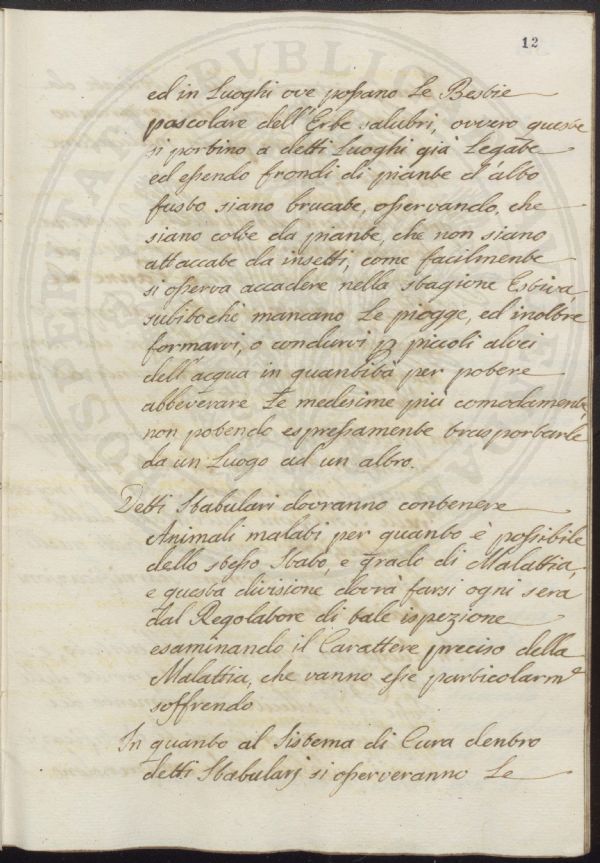 12
ed in Luoghi ove possano Le Bestie
pascolare dell'Erbe salubri, ovvero queste
si portino a detti Luoghi già Legate
ed essendo frondi di piante d'alto
fusto siano brucate, osservando, che
siano colte da piante, che non siano
attaccate da insetti, come facilmente
si osserva accadere nella stagione Estiva
subitochè mancano Le piogge, ed inoltre
formarvi, o condurvi p piccoli alvei
dell'acqua in quantità per potere
abbeverare Le medesime più comodamente
non potendo espressamente trasportarle
da un Luogo ad un altro.
Detti Stabulari dovranno contenere
Animali malati per quanto è possibile
dello stesso Stato, e grado di Malattia,
e questa divisione dovrà farsi ogni sera
dal Regolatore di tale ispezione
esaminando il Carattere preciso della
Malattia, che vanno esse particolarmᵉ
soffrendo
In quanto al Sistema di Cura dentro
detti Stabularj si osserveranno Le
PVBLIC